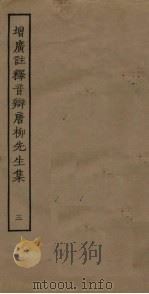 增廣註釋音辯唐柳先生集
三
研狗